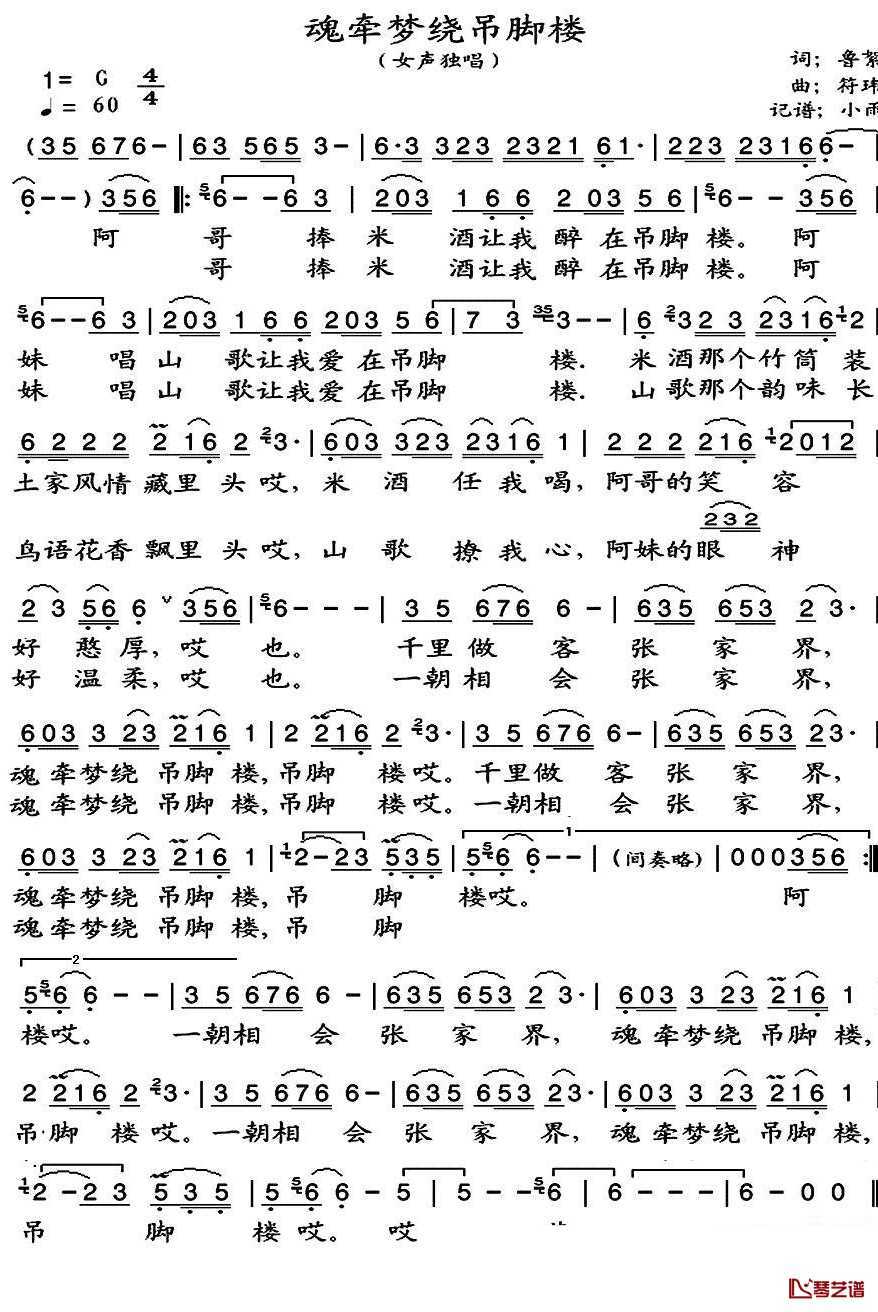 魂牵梦绕吊脚楼
（女声独唱）
词；鲁絮
1= G 4/4
曲；符玮
♩= 60
记谱；小雨
(35 676- | 63 565 3- | 6·3 323 2321 61· | 223 23166-
6--) 356 ‖: 56- -63 | 203 166 203 56 | 56- - 356
阿 哥 捧 米 酒让我 醉 在吊脚 楼。 阿
哥 捧 米 酒让我 醉 在吊脚 楼。 阿
56--63 | 203 166 203 56 | 73 353-- | 6 23 23 2316 12
妹 唱 山 歌让我爱 在吊脚 楼. 米 酒那个竹筒 装
妹 唱 山 歌让我爱 在吊脚 楼. 山 歌那个韵味 长
6222 216 2 23· | 603 323 2316 1 | 222 216 12012
土家风情 藏里 头 哎, 米 酒 任 我 喝, 阿哥的笑 容
232
鸟语花香 飘里 头 哎, 山 歌 撩 我 心, 阿妹的眼 神
23 56 6 ∨ 356 | 56--- | 35 676 6- | 635 653 23·
好 憨 厚, 哎 也。 千里 做 客 张 家 界,
好 温 柔, 哎 也。 一朝 相 会 张 家 界,
603 323 216 1 | 2 216 2 23· | 35 676 6- | 635 653 23·
魂 牵梦绕 吊脚 楼, 吊脚 楼哎。 千里做 客 张 家 界,
魂 牵梦绕 吊脚 楼, 吊脚 楼哎。 一朝相 会 张 家 界,
1
603 323 216 1 | 12-23 535 | 556 6-- | (间奏略) | 000356 :‖
魂 牵梦绕 吊脚 楼, 吊 脚 楼哎。 阿
魂 牵梦绕 吊脚 楼, 吊 脚
2
556 6 - - | 35 676 6 - | 635 653 23· | 603 323 216 1
楼哎。 一朝相 会 张 家 界, 魂 牵梦绕 吊脚 楼,
2 216 2 23· | 35 676 6- | 635 653 23· | 603 323 216 1
吊·脚 楼哎。 一朝相 会 张 家 界, 魂 牵梦绕 吊脚 楼,
12 -23 535 | 556 6 - 5 | 5 - - 56 | 6 - - - | 6 - 0 0 ‖
吊 脚 楼 哎。 哎
琴艺谱